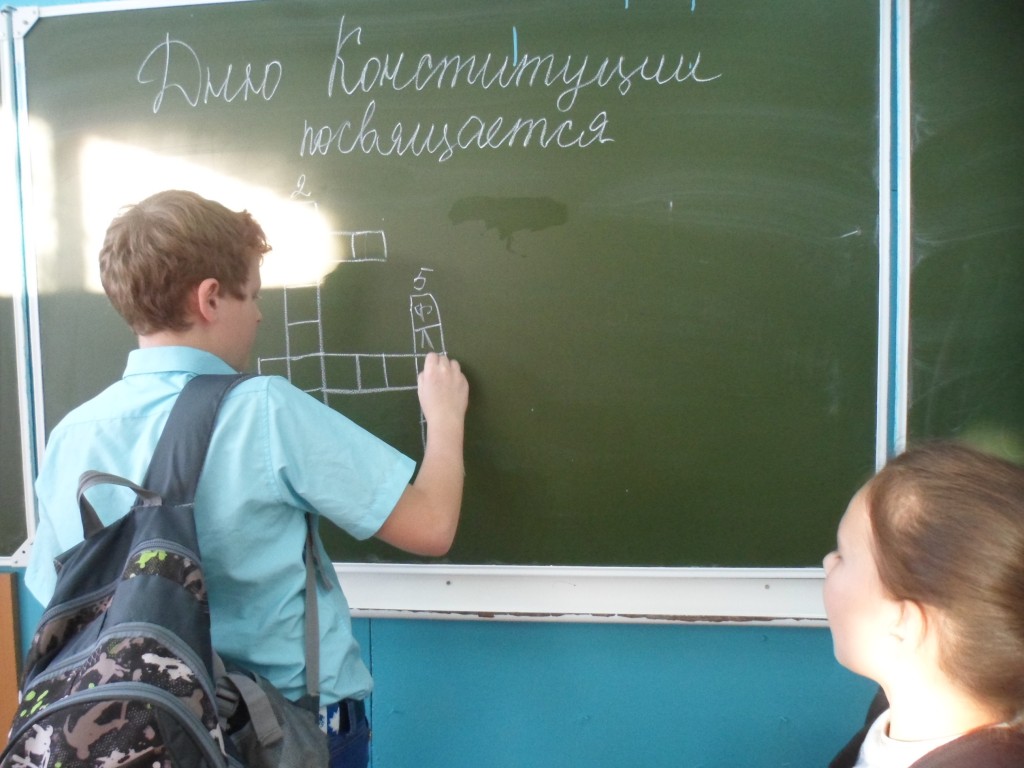 Дню Конституции
посвящается
2
5
Ф
Л